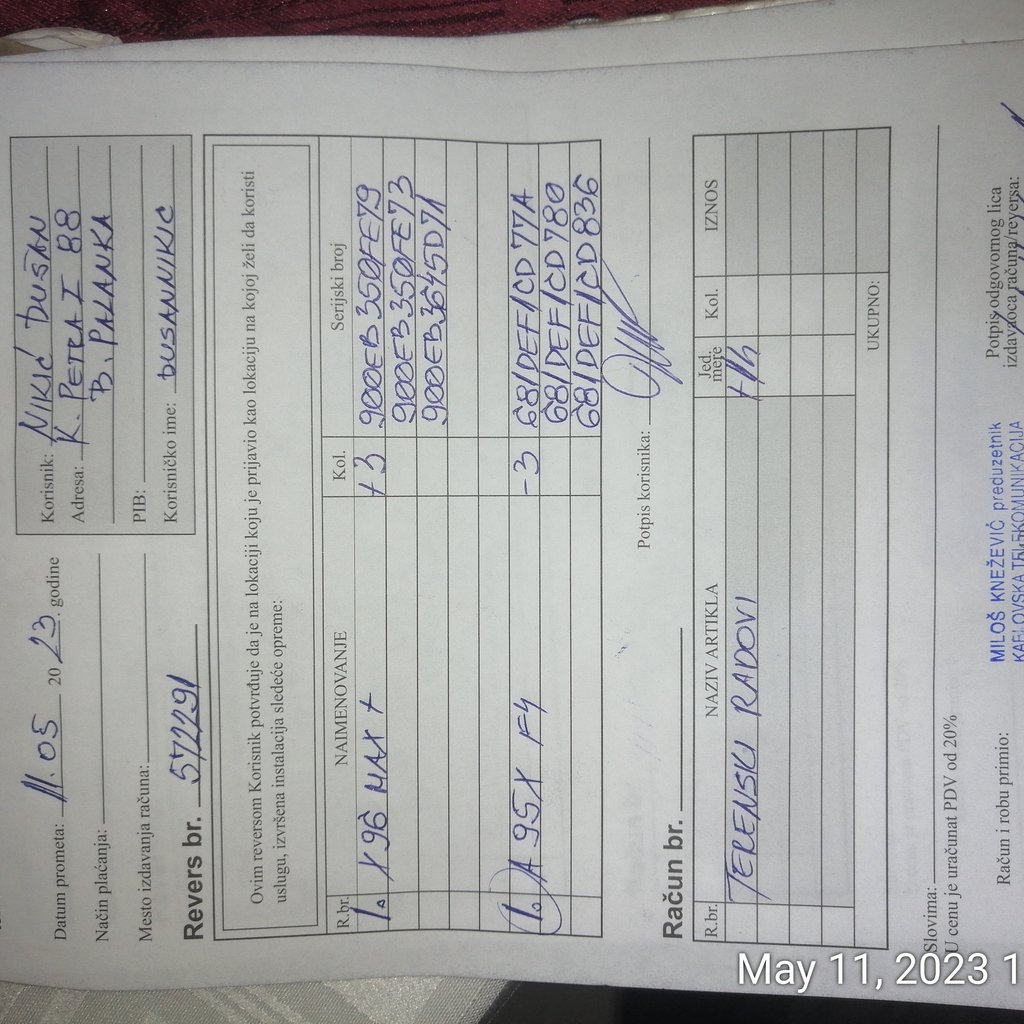 Datum prometa: 11.05 2023. godine
Način plaćanja:
Mesto izdavanja računa:
Korisnik: NIKIĆ DUŠAN
Adresa: K. PETRA I 88
B. PALANKA
PIB:
Korisničko ime: DUSANNIKIC
Revers br. 572291
Ovim reversom Korisnik potvrđuje da je na lokaciji koju je prijavio kao lokaciju na kojoj želi da koristi
uslugu, izvršena instalacija sledeće opreme:
R.br. NAIMENOVANJE Kol. Serijski broj
1. X96 MAX + +3 900EB350FE79
900EB350FE73
900EB3645D71
1. A95X F4 -3 681DEF1CD77A
681DEF1CD780
681DEF1CD836
Potpis korisnika:
Račun br.
R.br. NAZIV ARTIKLA Jed. mere Kol. IZNOS
TERENSKI RADOVI +1h
UKUPNO:
Slovima:
U cenu je uračunat PDV od 20%
Račun i robu primio:
MILOŠ KNEŽEVIĆ preduzetnik
KABLOVSKA TELEKOMUNIKACIJA
Potpis odgovornog lica
izdavaoca računa/reversa:
May 11, 2023 1